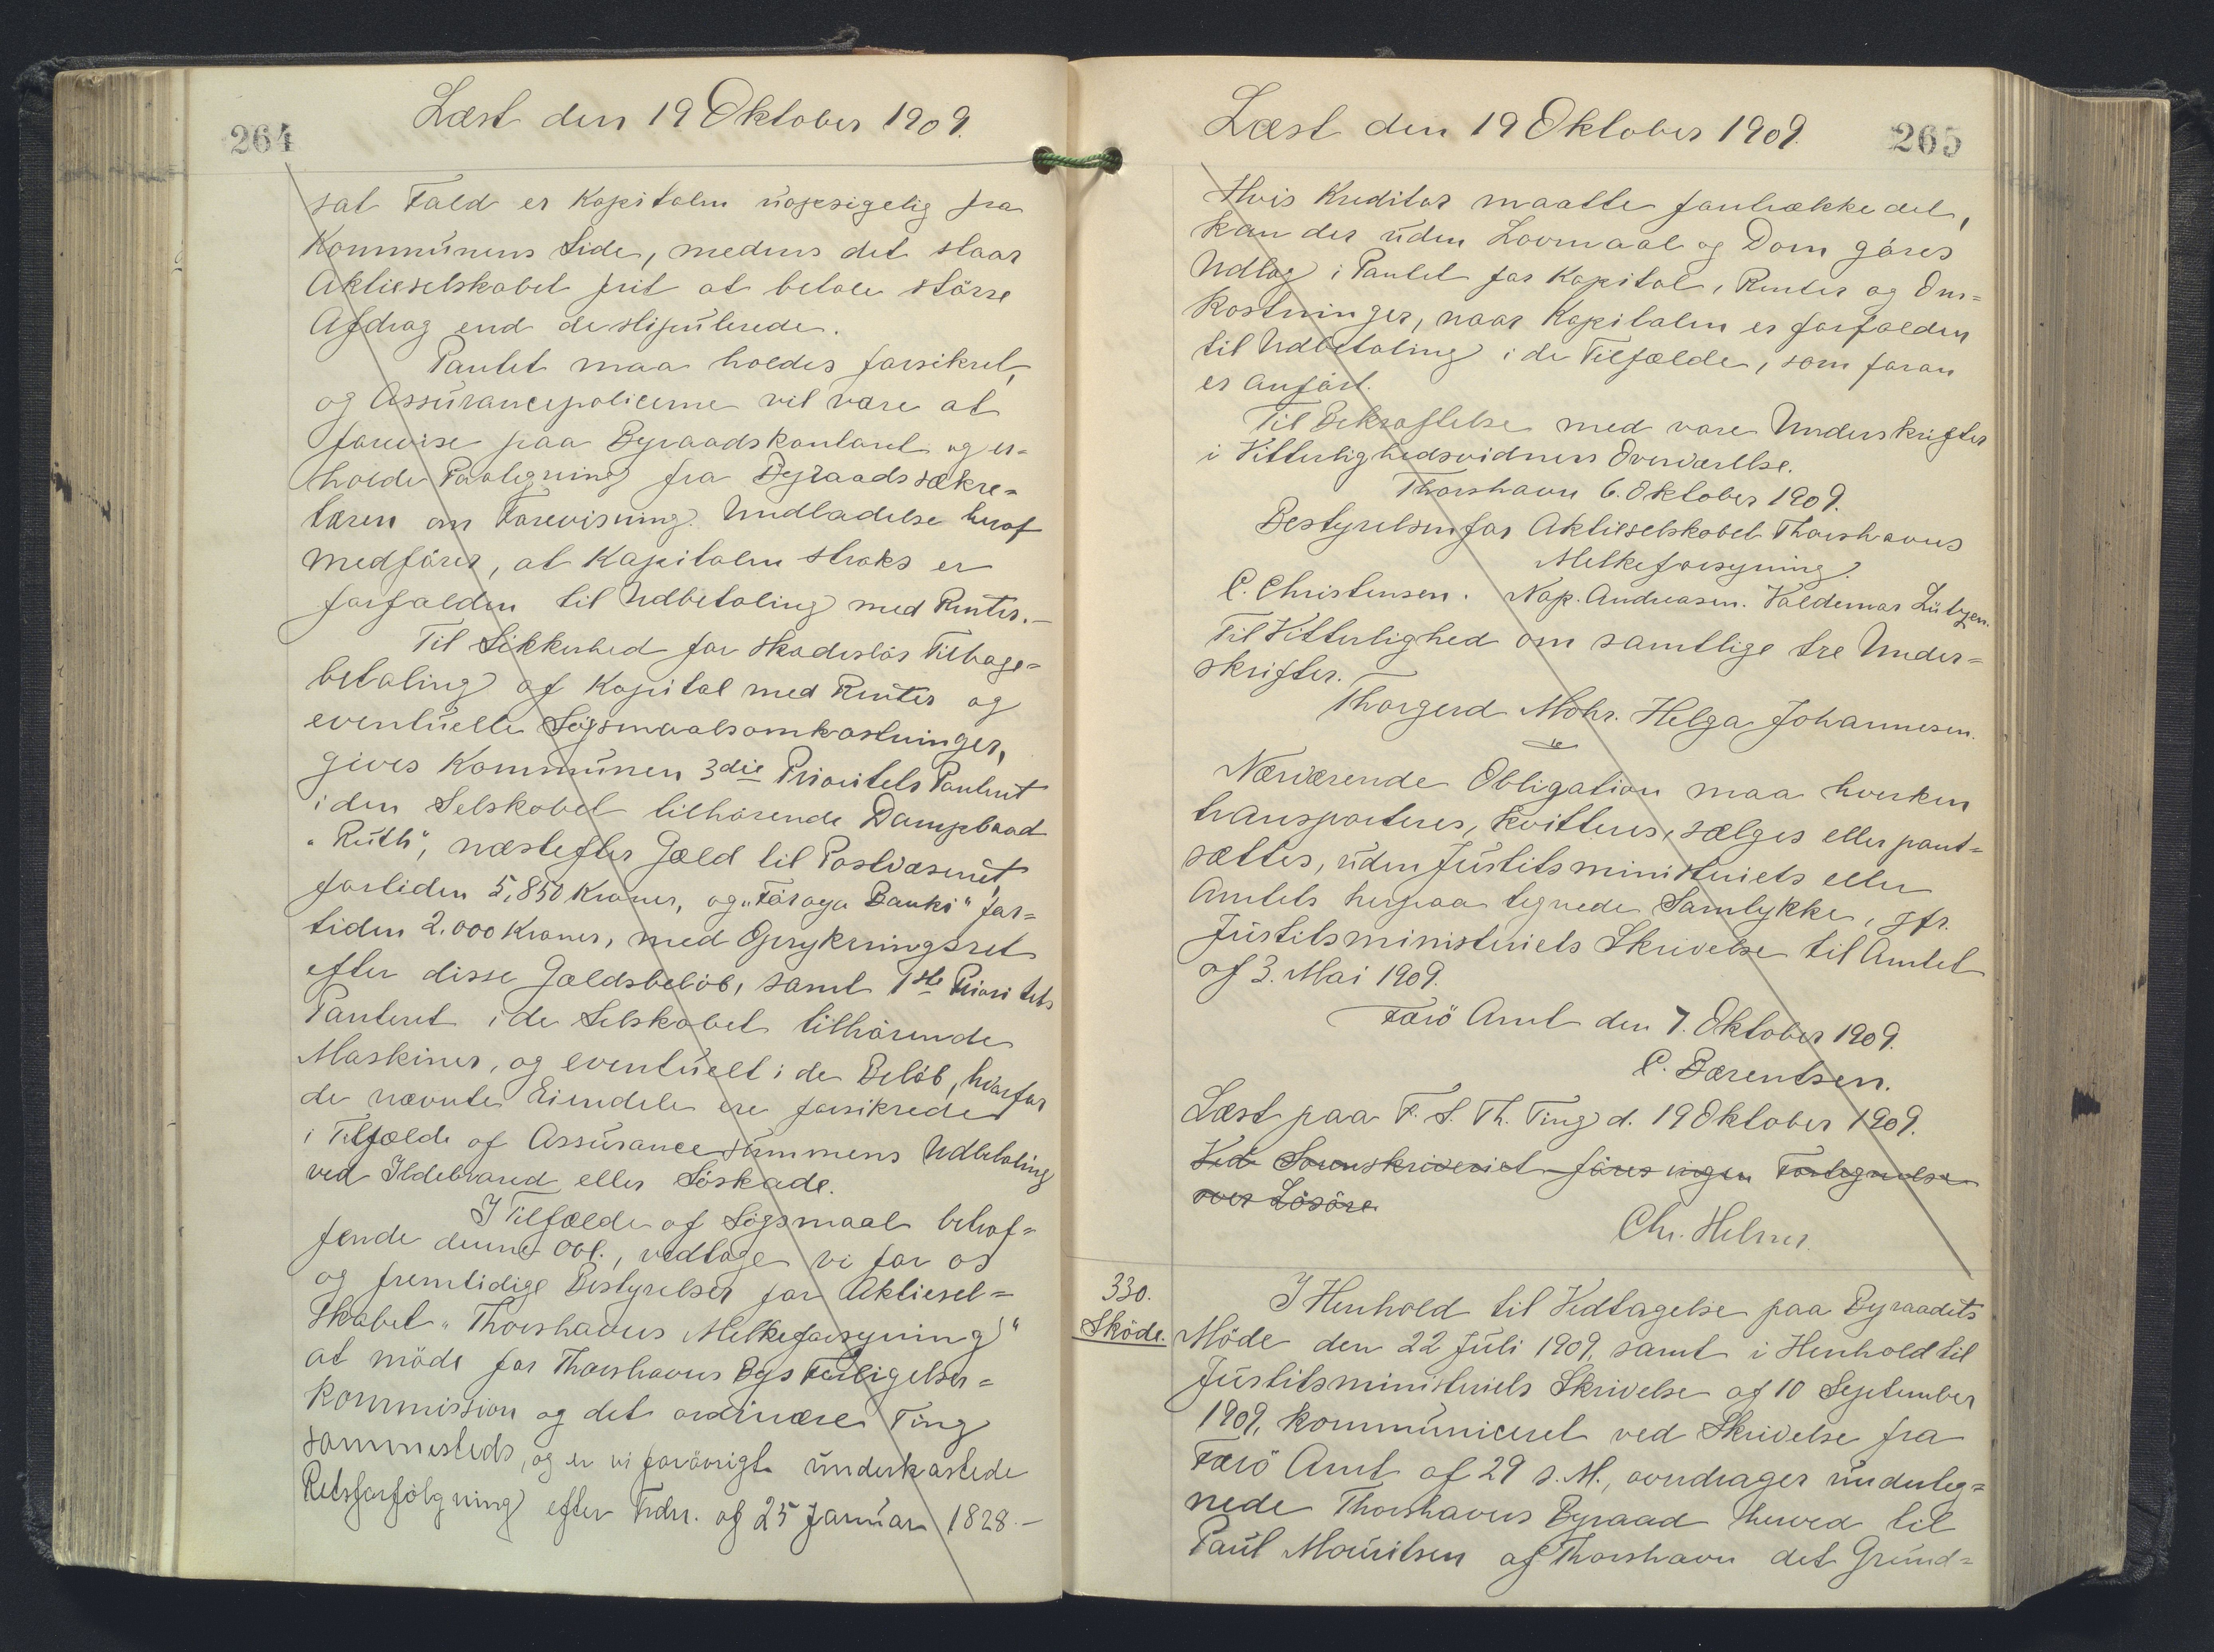 264
Læst den 19 Oktober 1909.
sat Fald er Kapitalen uopsigelig fra
Kommunens Side, medens det staar
Aktieselskabet frit at betale större
Afdrag end de stipulerede.
Pantet maa holdes forsikret,
og Assurancepolicerne vil være at
forevise paa Byraadskontoret og er=
holde Paategning fra Byraadssekre=
tæren om Forevisning. Undladelse heraf
medförer, at Kapitalen straks er
forfalden til Udbetaling med Renter.—
Til Sikkerhed for skadeslös Tilbage=
betaling af Kapital med Renter og
eventuelle Sögsmaalsomkostninger,
gives Kommunen 3die Prioritets Panteret
i den Selskabet tilhörende Dampbaad
"Ruth", næstefter Gæld til Postvæsenet,
fortiden 5,850 Kroner, og "Föroya Banki" for=
tiden 2.000 Kroner, med Oprykningsret
efter disse Gældsbelöb, samt 1ste Prioritets
Panteret i de Selskabet tilhörende
Maskiner, og eventuelt i de Belöb, hvorfor
de nævnte Eiendele ere forsikrede
i Tilfælde af Assurancesummens Udbetaling
ved Ildebrand eller Söskade.
I Tilfælde af Sögsmaal betræf=
fende denne Obl., vedtage vi for os
og fremtidige Bestyrelser for Aktiesel=
skabet "Thorshavns Melkeforsyning"
at möde for Thorshavns Bys Forligelses=
kommission og det ordinære Ting
sammesteds, og er vi forövrigt underkastede
Retsforfölgning efter Frdn. af 25 Januar 1828.—
265
Læst den 19 Oktober 1909.
Hvis Kreditor maatte foretrække det,
kan der uden Lovmaal og Dom göres
Udlæg i Pantet for Kapital, Renter og Om=
kostninger, naar Kapitalen er forfalden
til Udbetaling i de Tilfælde, som foran
er anfört.
Til Bekræftelse med vore Underskrifter
i Vitterlighedsvidners Overværelse.
Thorshavn 6. Oktober 1909.
Bestyrelsen for Aktieselskabet Thorshavns
Melkeforsyning.
C. Christensen. Nap. Andreasen. Valdemar Lützen.
Til Vitterlighed om samtlige tre Under=
skrifter.
Thorgerd Mohr. Helga Johannesen.
Nærværende Obligation maa hverken
transporteres, kvitteres, sælges eller pant=
sættes, uden Justitsministeriets eller
Amtets herpaa tegnede Samtykke, jfr.
Justitsministeriets Skrivelse til Amtet
af 3. Mai 1909.
Færö Amt den 7. Oktober 1909.
C. Bærentsen.
Læst paa F. S. Th. Ting d. 19 Oktober 1909.
Ved Sorenskriveriet föres ingen Fortegnelse
over Lösöre
Chr. Helmer.
330.
Sköde.
I Henhold til Vedtagelse paa Byraadets
Möde den 22 Juli 1909, samt i Henhold til
Justitsministeriets Skrivelse af 10 September
1909, kommuniceret ved Skrivelse fra
Færö Amt af 29 s. M., overdrager underteg=
nede Thorshavns Byraad herved til
Paul Mouritsen af Thorshavn det Grund=